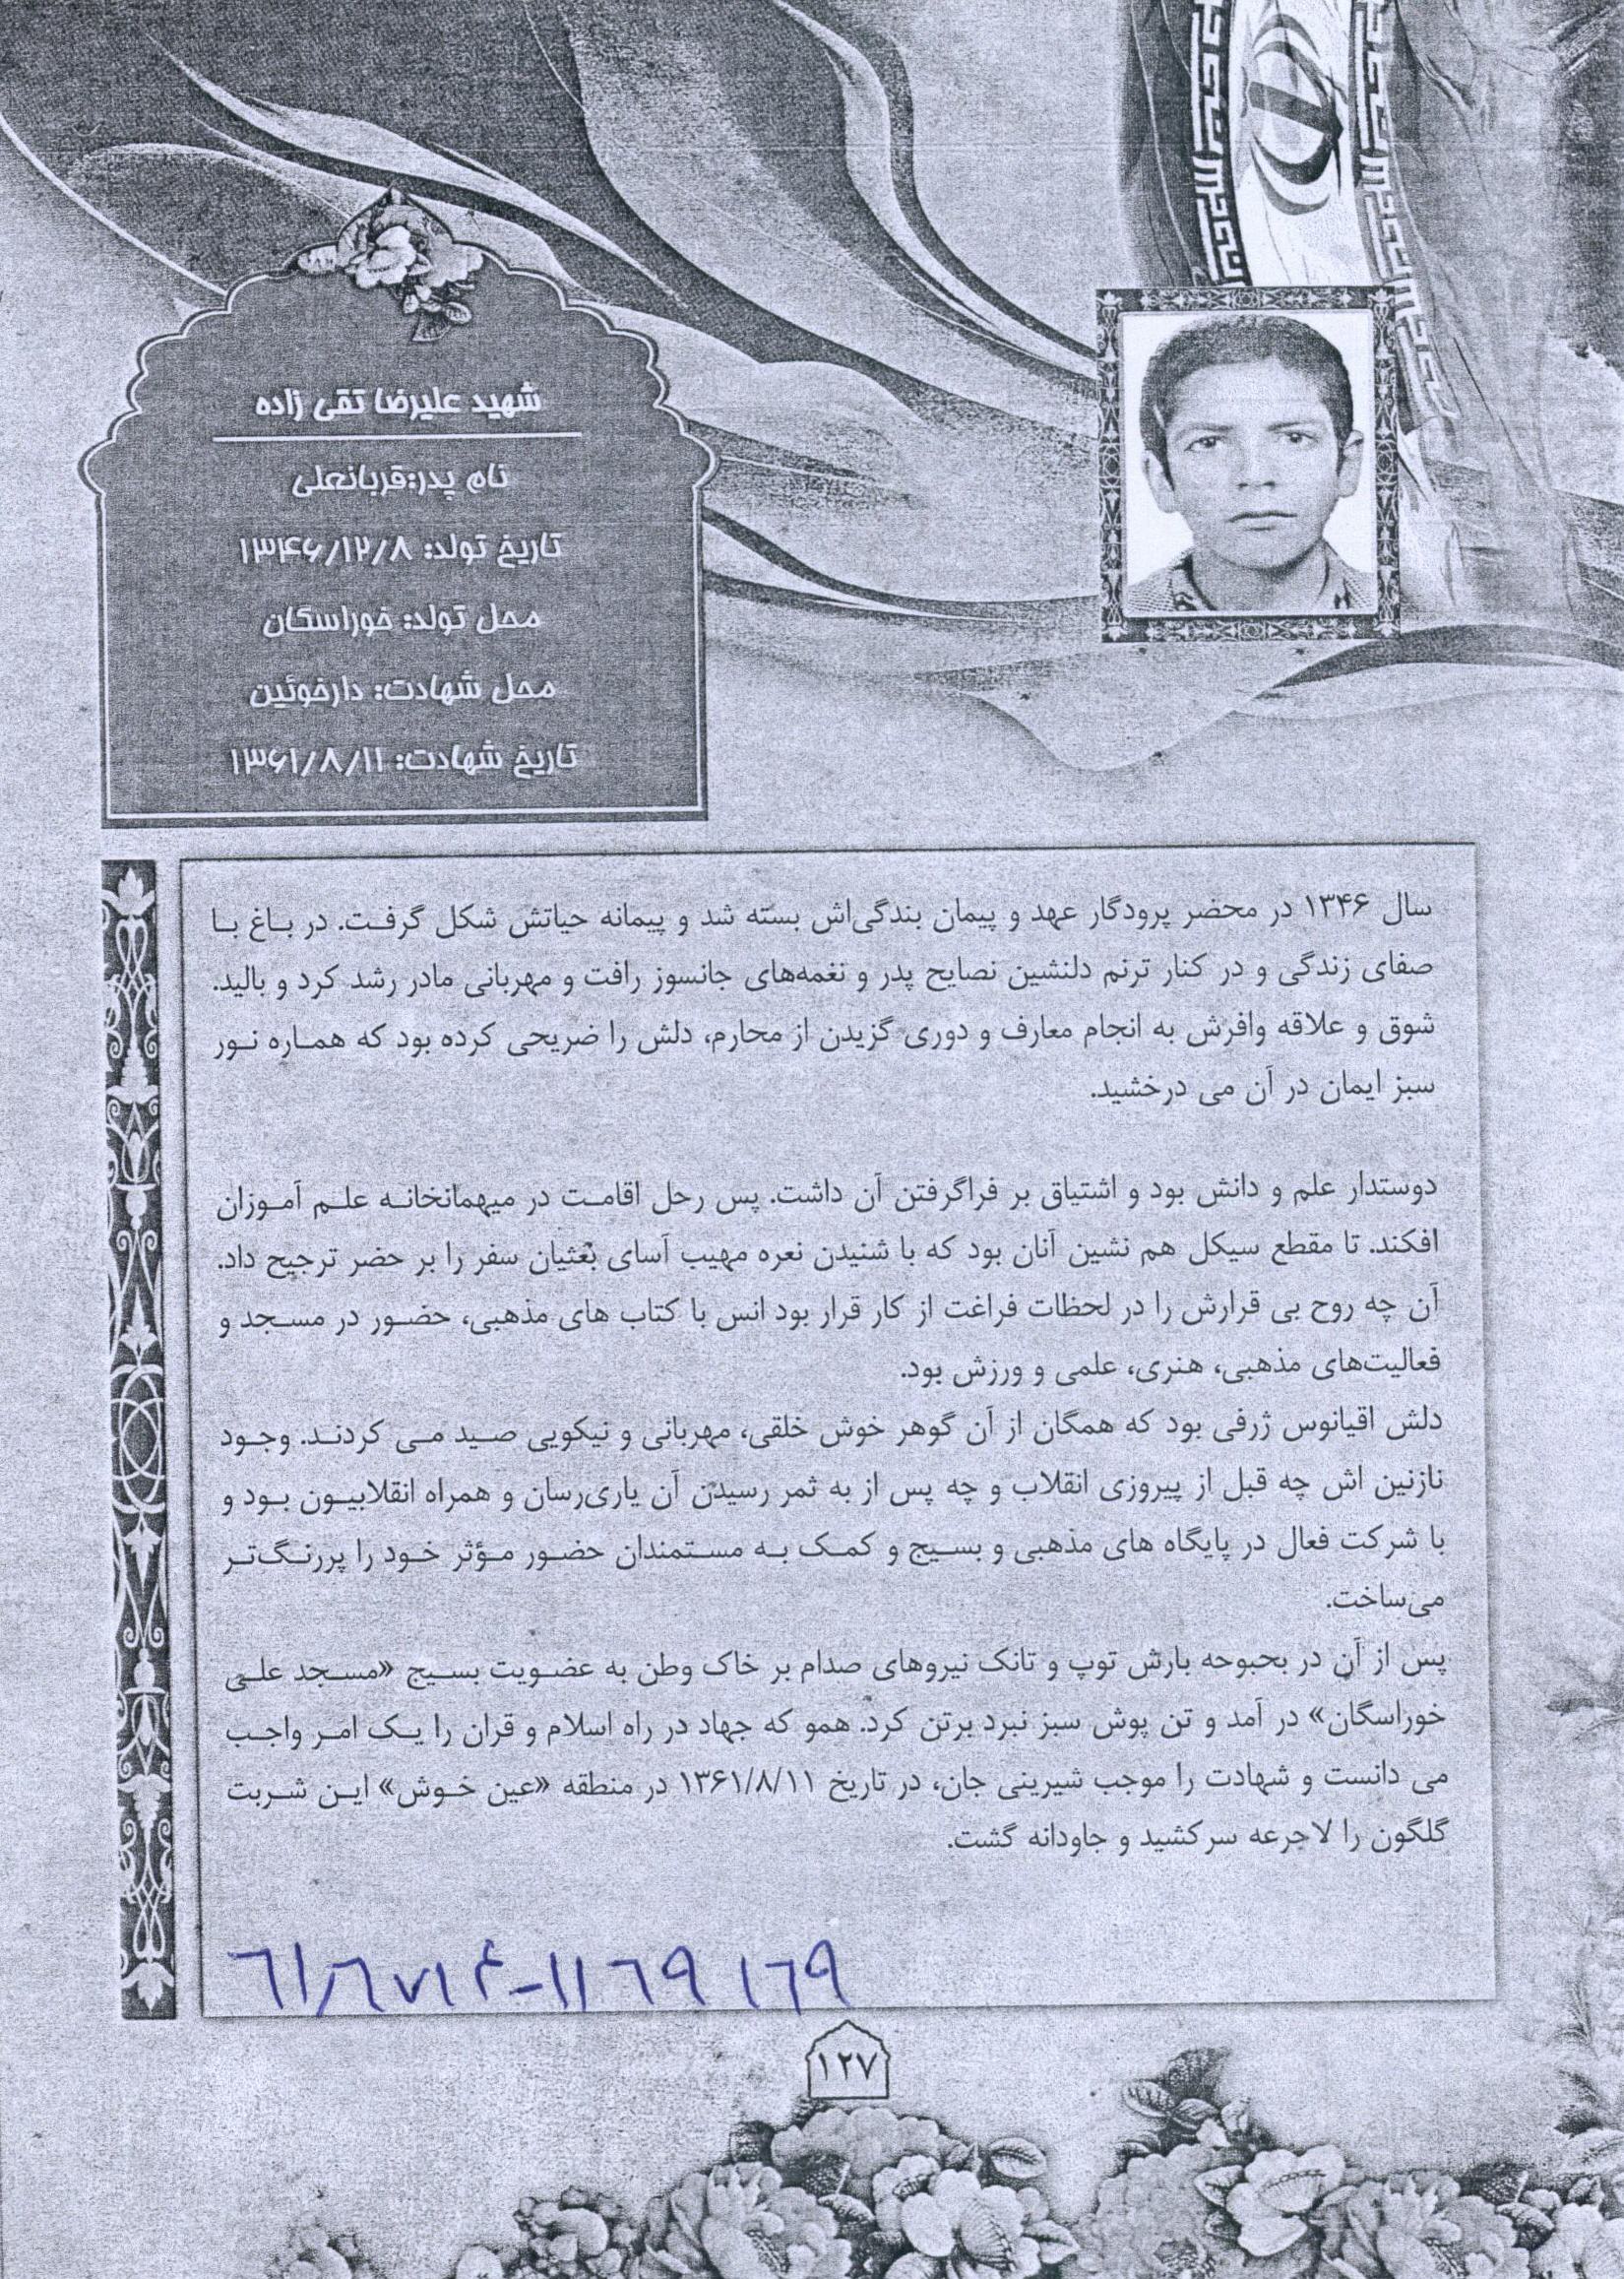 شهید علیرضا تقی زاده
نام پدر:قربانعلی
تاریخ تولد: ۱۳۴۶/۱۲/۸
محل تولد: خوراسگان
محل شهادت: دارخوئین
تاریخ شهادت: ۱۳۶۱/۸/۱۱
سال ۱۳۴۶ در محضر پرودگار عهد و پیمان بندگی‌اش بسته شد و پیمانه حیاتش شکل گرفت. در باغ با
صفای زندگی و در کنار ترنم دلنشین نصایح پدر و نغمه‌های جانسوز رافت و مهربانی مادر رشد کرد و بالید.
شوق و علاقه وافرش به انجام معارف و دوری گزیدن از محارم، دلش را ضریحی کرده بود که هماره نور
سبز ایمان در آن می درخشید.
دوستدار علم و دانش بود و اشتیاق بر فراگرفتن آن داشت. پس رحل اقامت در میهمانخانه علم آموزان
افکند. تا مقطع سیکل هم نشین آنان بود که با شنیدن نعره مهیب آسای بعثیان سفر را بر حضر ترجیح داد.
آن چه روح بی قرارش را در لحظات فراغت از کار قرار بود انس با کتاب های مذهبی، حضور در مسجد و
فعالیت‌های مذهبی، هنری، علمی و ورزش بود.
دلش اقیانوس ژرفی بود که همگان از آن گوهر خوش خلقی، مهربانی و نیکویی صید می کردند. وجود
نازنین اش چه قبل از پیروزی انقلاب و چه پس از به ثمر رسیدن آن یاری‌رسان و همراه انقلابیون بود و
با شرکت فعال در پایگاه های مذهبی و بسیج و کمک به مستمندان حضور مؤثر خود را پررنگ‌تر
می‌ساخت.
پس از آن در بحبوحه بارش توپ و تانک نیروهای صدام بر خاک وطن به عضویت بسیج «مسجد علی
خوراسگان» در آمد و تن پوش سبز نبرد برتن کرد. همو که جهاد در راه اسلام و قران را یک امر واجب
می دانست و شهادت را موجب شیرینی جان، در تاریخ ۱۳۶۱/۸/۱۱ در منطقه «عین خوش» این شربت
گلگون را لاجرعه سرکشید و جاودانه گشت.
۱۲۷